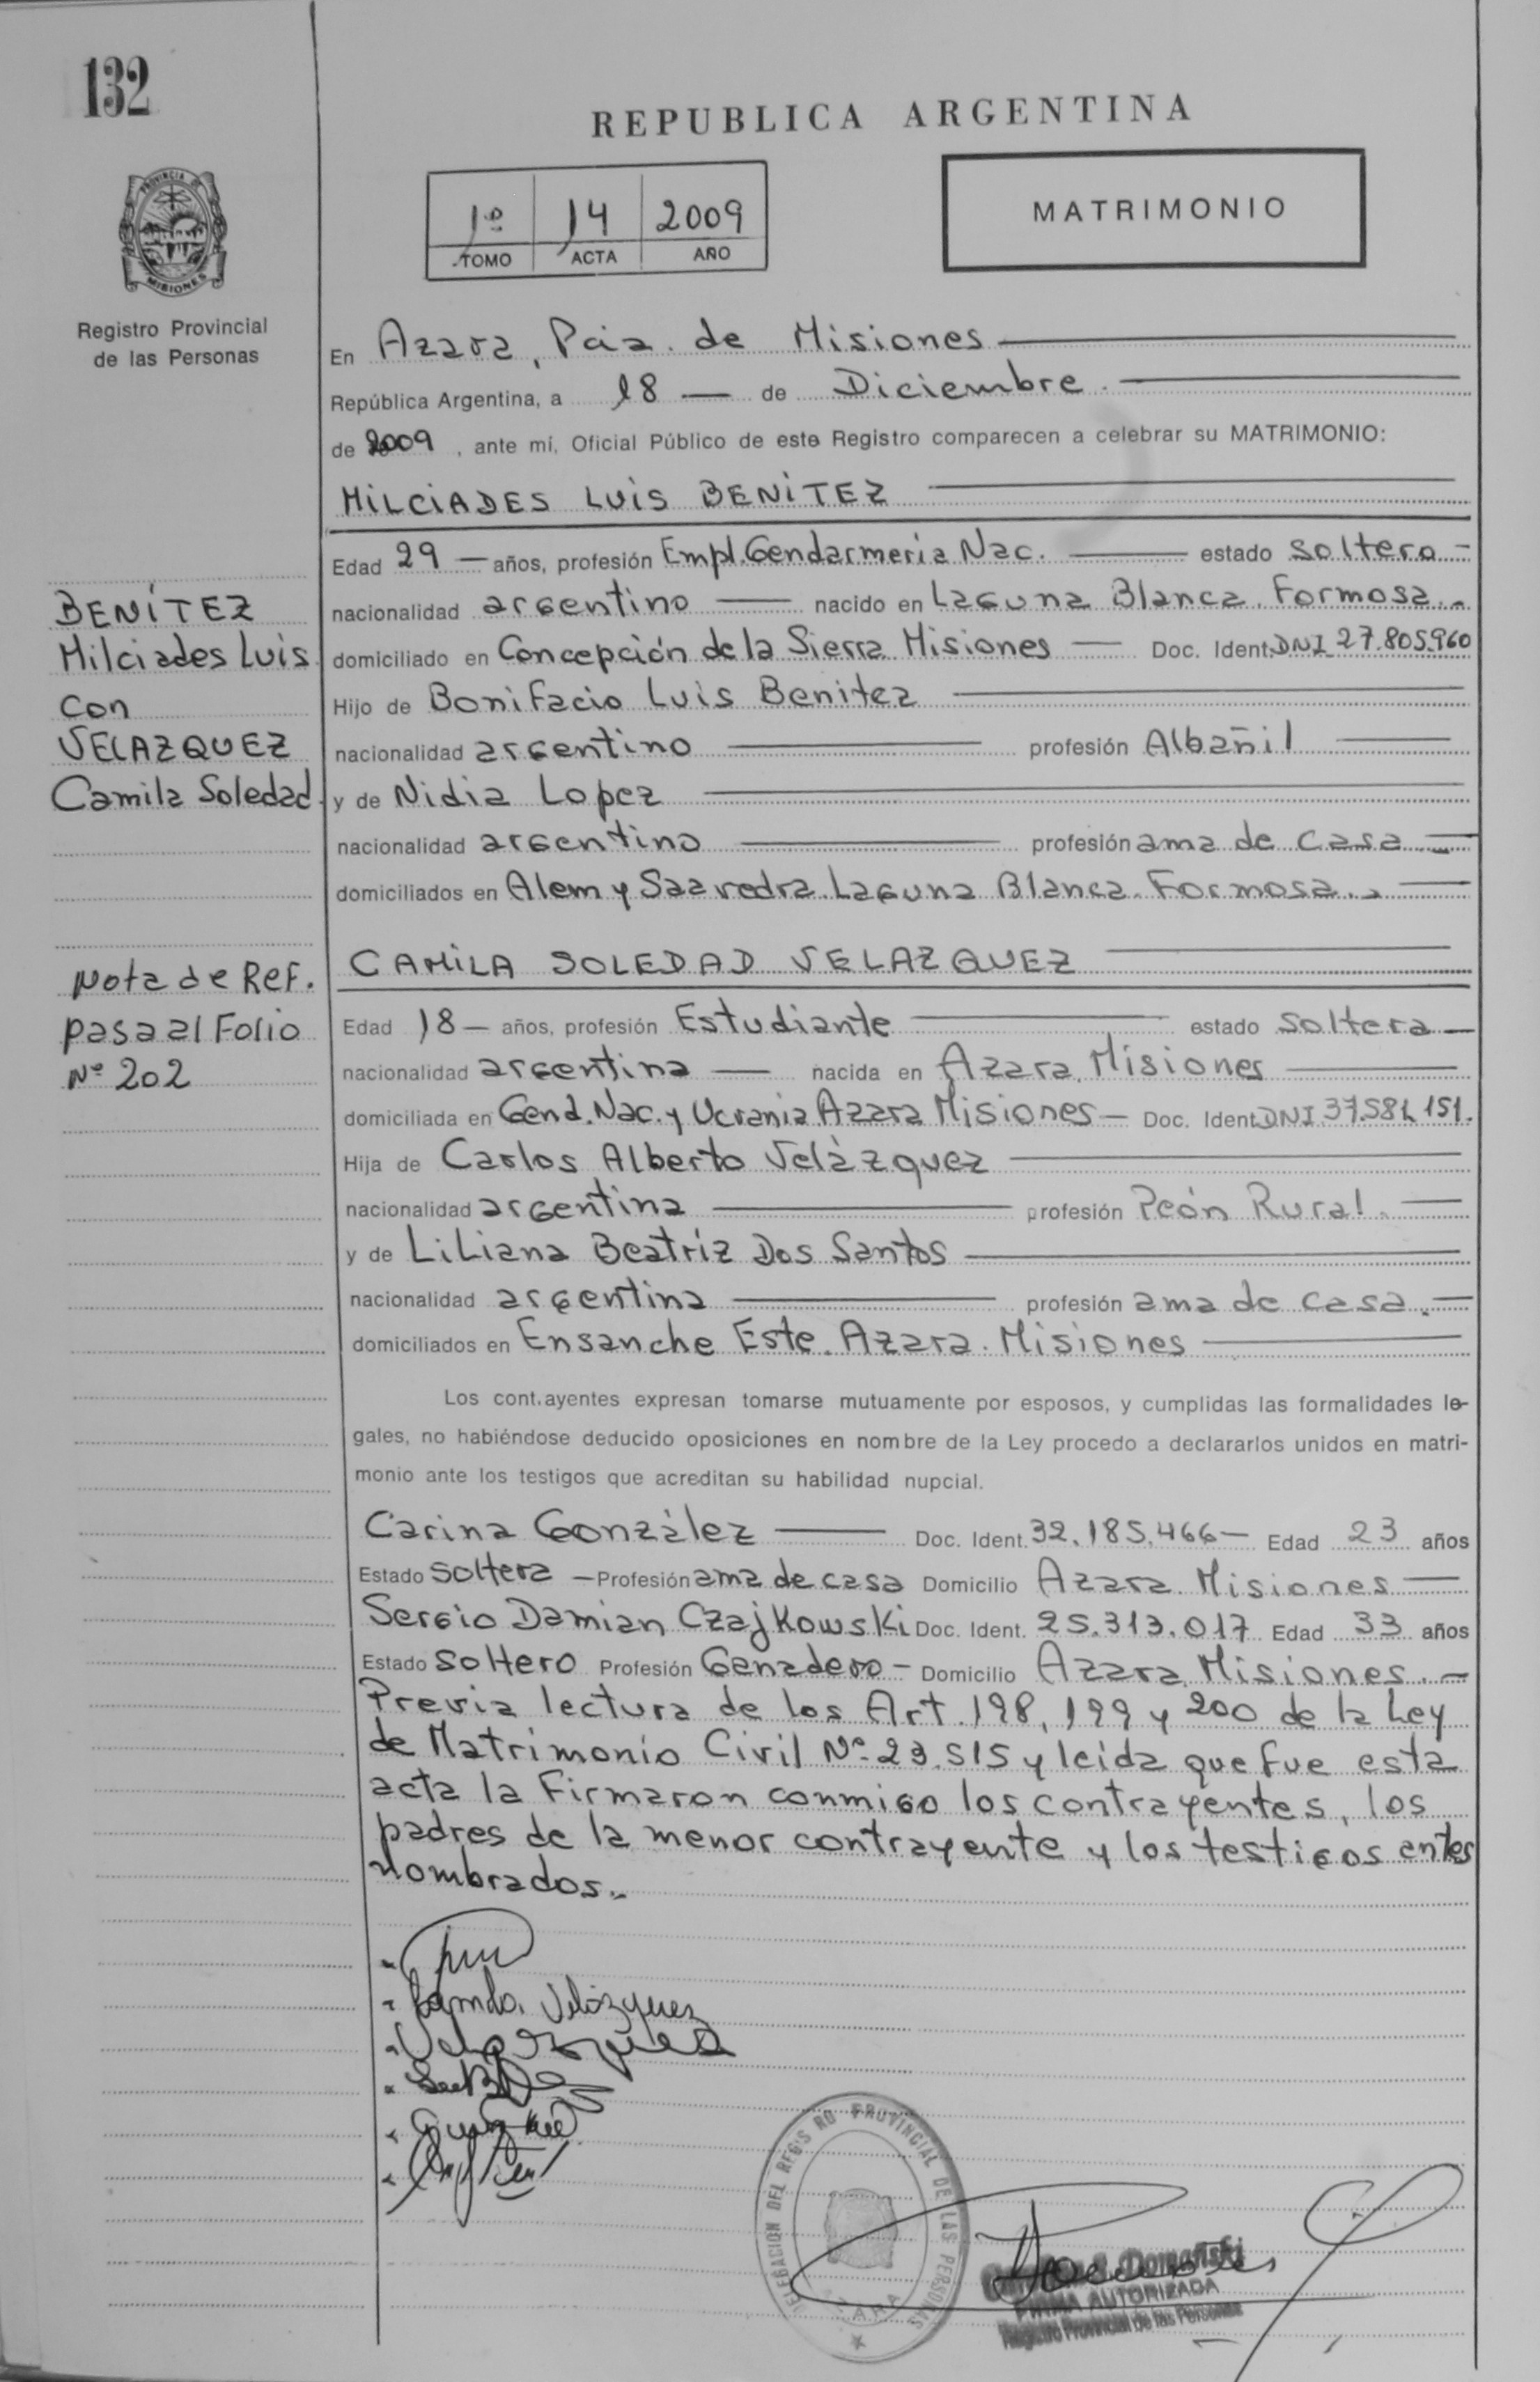 132
REPUBLICA ARGENTINA
PROVINCIA DE
MISIONES
Registro Provincial
de las Personas
1º 14 2009
TOMO ACTA AÑO
MATRIMONIO
En Azara, Pcia. de Misiones
República Argentina, a 18 — de Diciembre.
de 2009, ante mí, Oficial Público de este Registro comparecen a celebrar su MATRIMONIO:
MILCIADES LUIS BENITEZ
Edad 29 — años, profesión Empl. Gendarmeria Nac. — estado soltero -
nacionalidad argentino — nacido en Laguna Blanca. Formosa.-
domiciliado en Concepción de la Sierra Misiones — Doc. Ident. DNI 27.805.960
Hijo de Bonifacio Luis Benitez
nacionalidad argentino — profesión Albañil —
y de Nidia Lopez
nacionalidad argentino — profesión ama de casa. —
domiciliados en Alem y Saavedra. Laguna Blanca. Formosa.-
BENÍTEZ
Milciades Luis
con
VELAZQUEZ
Camila Soledad.
Nota de Ref.
pasa al Folio
Nº 202
CAMILA SOLEDAD VELAZQUEZ
Edad 18 — años, profesión Estudiante — estado soltera —
nacionalidad argentina — nacida en Azara, Misiones
domiciliada en Gend. Nac. y Ucrania Azara Misiones — Doc. Ident. DNI 37.581.151.
Hija de Carlos Alberto Velázquez
nacionalidad argentina — profesión Peón Rural. —
y de Liliana Beatríz Dos Santos
nacionalidad argentina — profesión ama de casa. —
domiciliados en Ensanche Este. Azara. Misiones
Los cont.ayentes expresan tomarse mutuamente por esposos, y cumplidas las formalidades le-
gales, no habiéndose deducido oposiciones en nombre de la Ley procedo a declararlos unidos en matri-
monio ante los testigos que acreditan su habilidad nupcial.
Carina González — Doc. Ident. 32.185.466 — Edad 23 años
Estado soltera — Profesión ama de casa Domicilio Azara. Misiones —
Sergio Damian Czajkowski Doc. Ident. 25.313.017 Edad 33 años
Estado soltero Profesión Ganadero - Domicilio Azara, Misiones. —
Previa lectura de los Art. 198, 199 y 200 de la Ley
de Matrimonio Civil Nº 23.515 y leida que fue esta
acta la firmaron conmigo los contrayentes, los
padres de la menor contrayente y los testigos antes
nombrados.-
Velázquez
DELEGACION DEL REGISTRO PROVINCIAL DE LAS PERSONAS
AZARA
Domański
FIRMA AUTORIZADA
Registro Provincial de las Personas